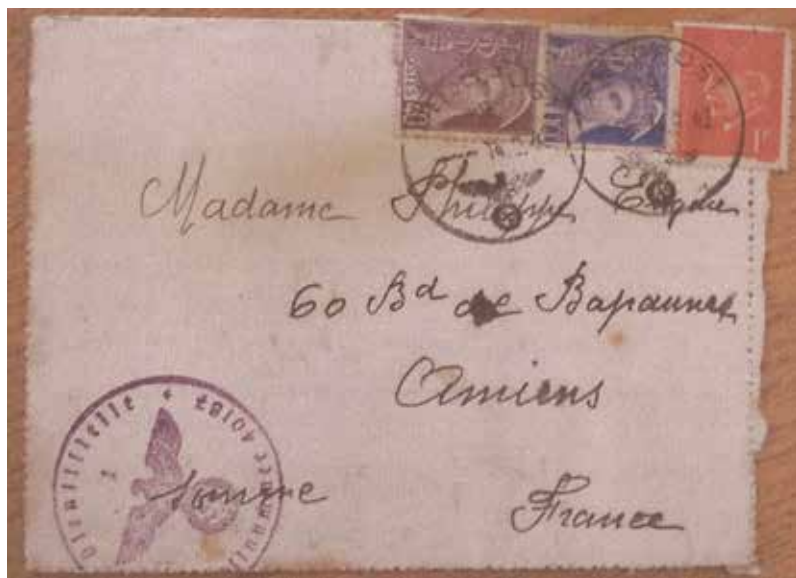 Madame Philippe Eugène
60 Bd de Bapaume
Amiens
Somme
France
Dienststelle
40187